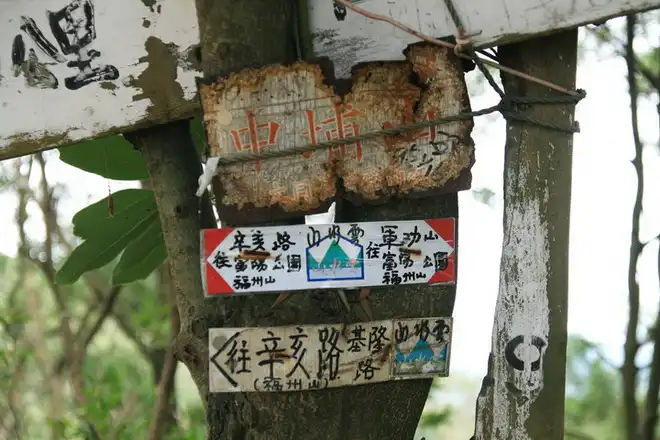 中埔山
辛亥路
往富陽公園
福州山
山水雲
軍功山
往富陽公園
福州山
往辛亥路
基隆路
(福州山)
山水雲